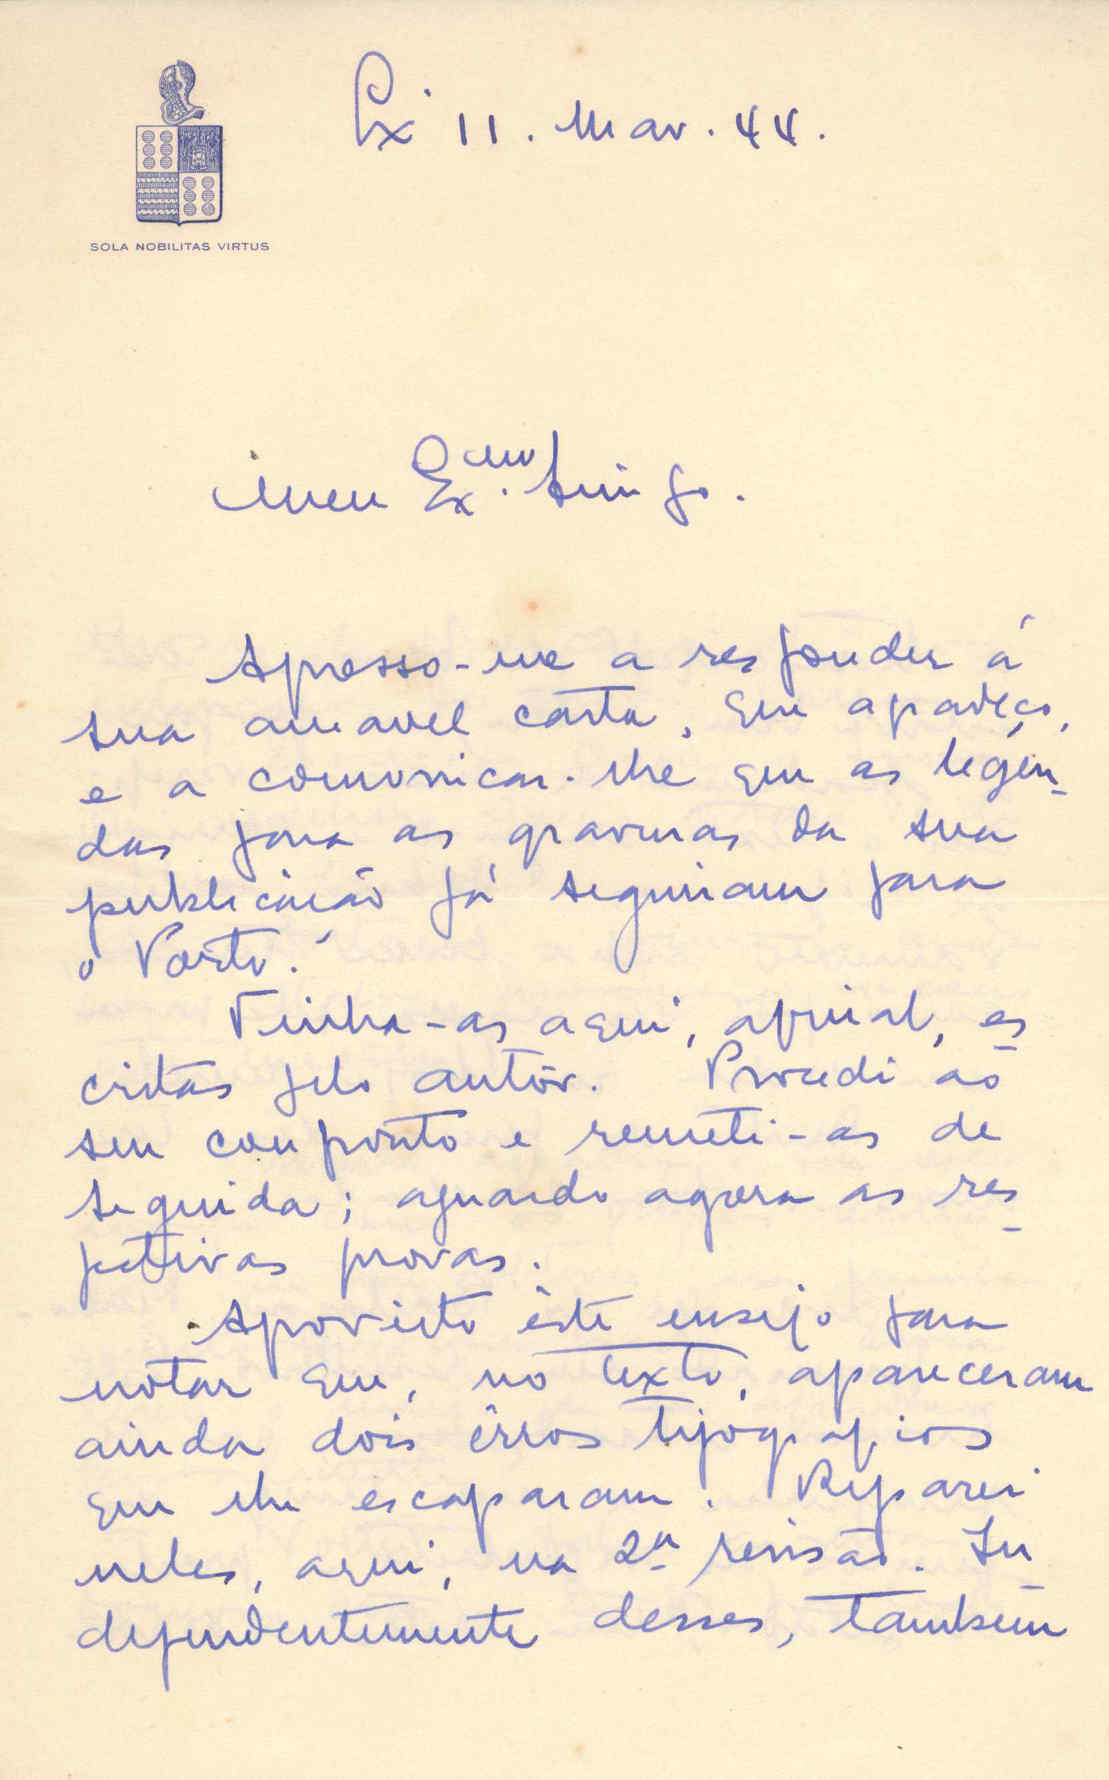 Lxª 11. Mar. 44.
SOLA NOBILITAS VIRTUS
Meu Ex.mo Amigo.
Apresso-me a responder á
sua amavel carta, que agradeço,
e a comunicar-lhe que as legen-
das para as gravuras da sua
publicação já seguiram para
o Porto.
Tinha-as aqui, afinal, es-
critas pelo autôr. Procedi ao
seu conponto e remeti-as de
seguida; aguardo agora as res-
petivas provas.
Aproveito êste ensejo para
notar que, no texto, apareceram
ainda dois êrros tipográficos
que lhe escaparam. Reparei
neles, aqui, na 2ª revisão. In-
dependentemente desses, tambem